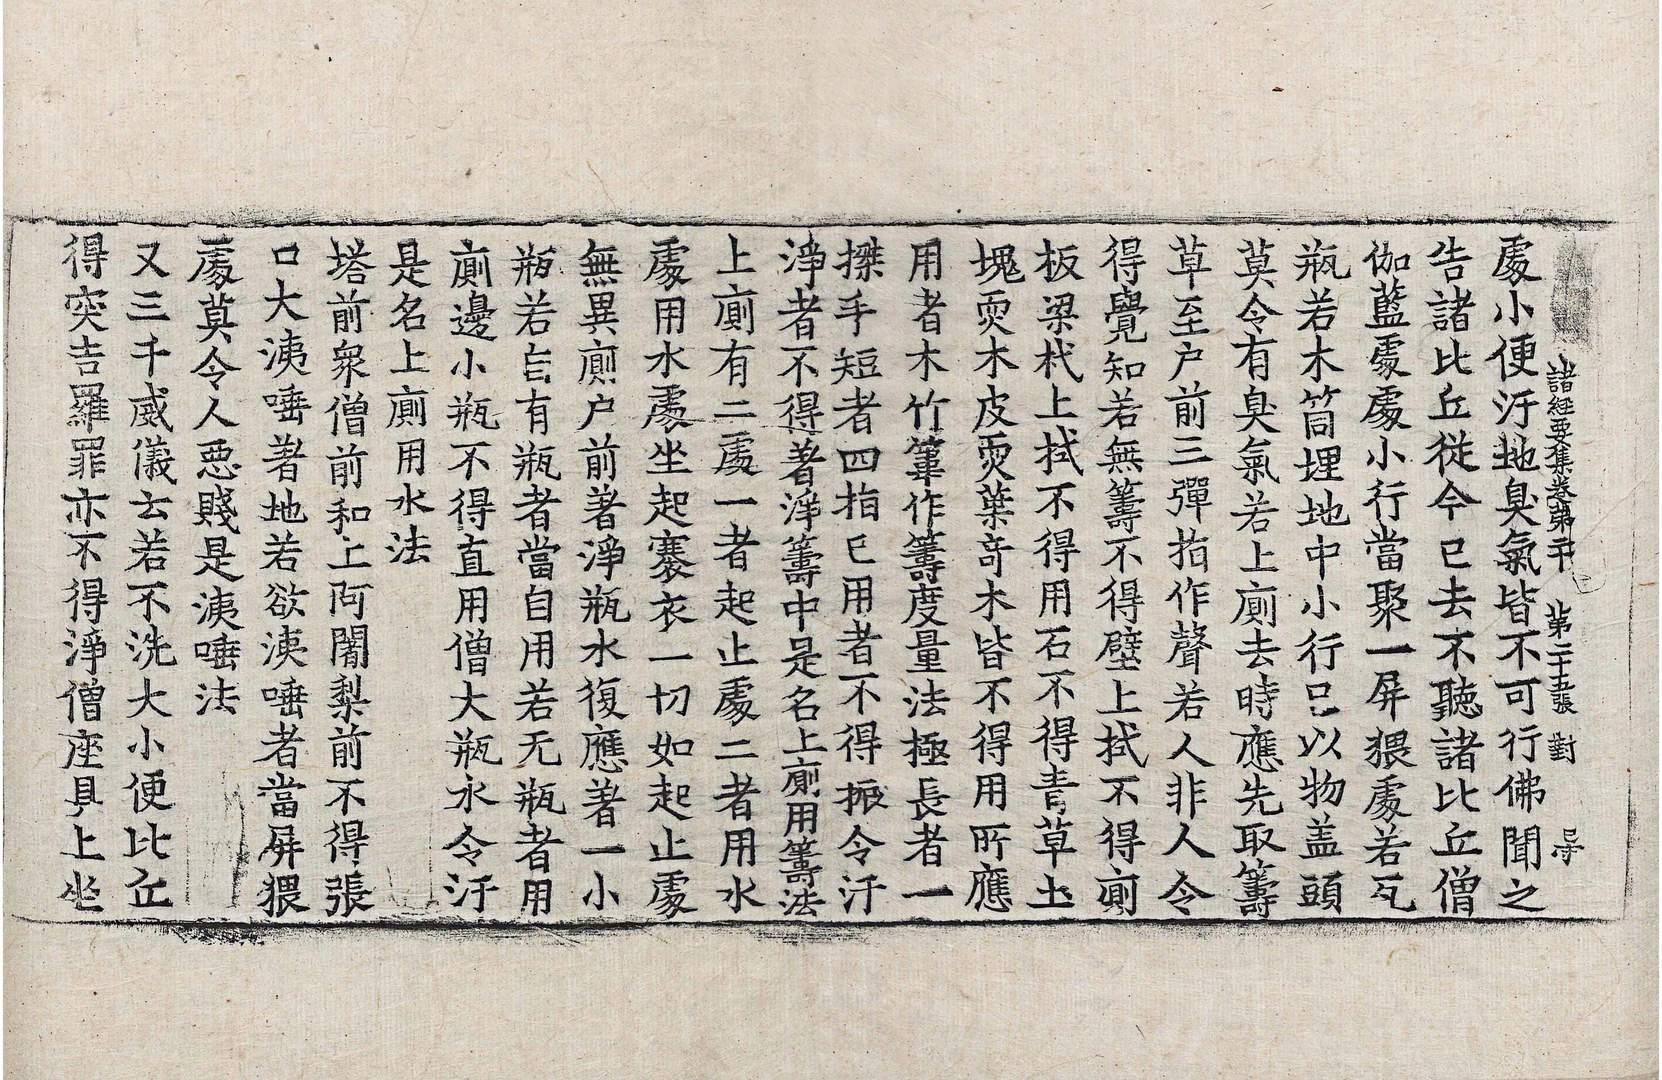 諸經要集卷第二十 第二十五張 對
處小便汙地臭氣皆不可行佛聞之
告諸比丘從今已去不聽諸比丘僧
伽藍處處小行當聚一屏猥處若瓦
瓶若木筒埋地中小行已以物盖頭
莫令有臭氣若上廁去時應先取籌
草至户前三彈指作聲若人非人令
得覺知若無籌不得壁上拭不得廁
板梁栿上拭不得用石不得青草土
塊耎木皮耎葉奇木皆不得用所應
用者木竹篳作籌度量法極長者一
搩手短者四指已用者不得振令汙
淨者不得著淨籌中是名上廁用籌法
上廁有二處一者起止處二者用水
處用水處坐起褰衣一切如起止處
無異廁户前著淨瓶水復應著一小
瓶若自有瓶者當自用若无瓶者用
廁邊小瓶不得直用僧大瓶水令汙
是名上廁用水法
塔前衆僧前和上阿闍梨前不得張
口大洟唾著地若欲洟唾者當屏猥
處莫令人惡賤是洟唾法
又三千威儀云若不洗大小便比丘
得突吉羅罪亦不得淨僧座具上坐